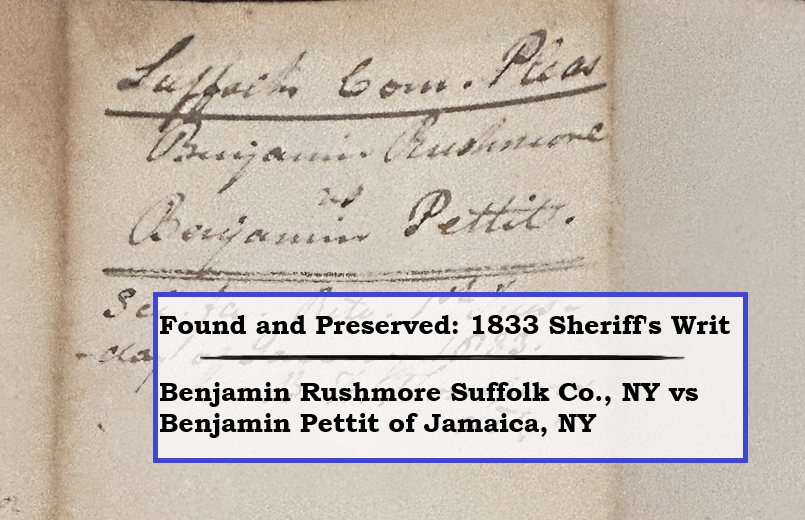 Suffolk Com. Pleas
Benjamin Rushmore
vs
Benjamin Pettit.
Sci. fa.
-day
Found and Preserved: 1833 Sheriff's Writ
Benjamin Rushmore Suffolk Co., NY vs
Benjamin Pettit of Jamaica, NY